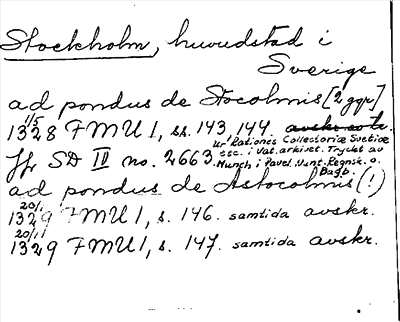 Stockholm, huvudstad i
Sverige
ad pondus de Stocolmis [2 ggr]
1/5
1328 FMU I, ss. 143, 144.
ur Rationes Collectoriæ Svetiæ
Jfr SD IV no. 2663 etc. i Vat. arkivet. Tryckt av
Munch i Pavel. Nunt. Regnsk. o. Dagb.
ad pondus de Astocolmis (!)
20/1
1329 FMU I, s. 146. samtida avskr.
20/11
1329 FMU I, s. 147. samtida avskr.